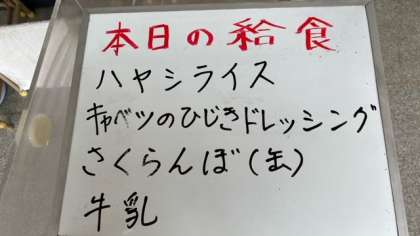 本日の給食
ハヤシライス
キャベツのひじきドレッシング
さくらんぼ(缶)
牛乳